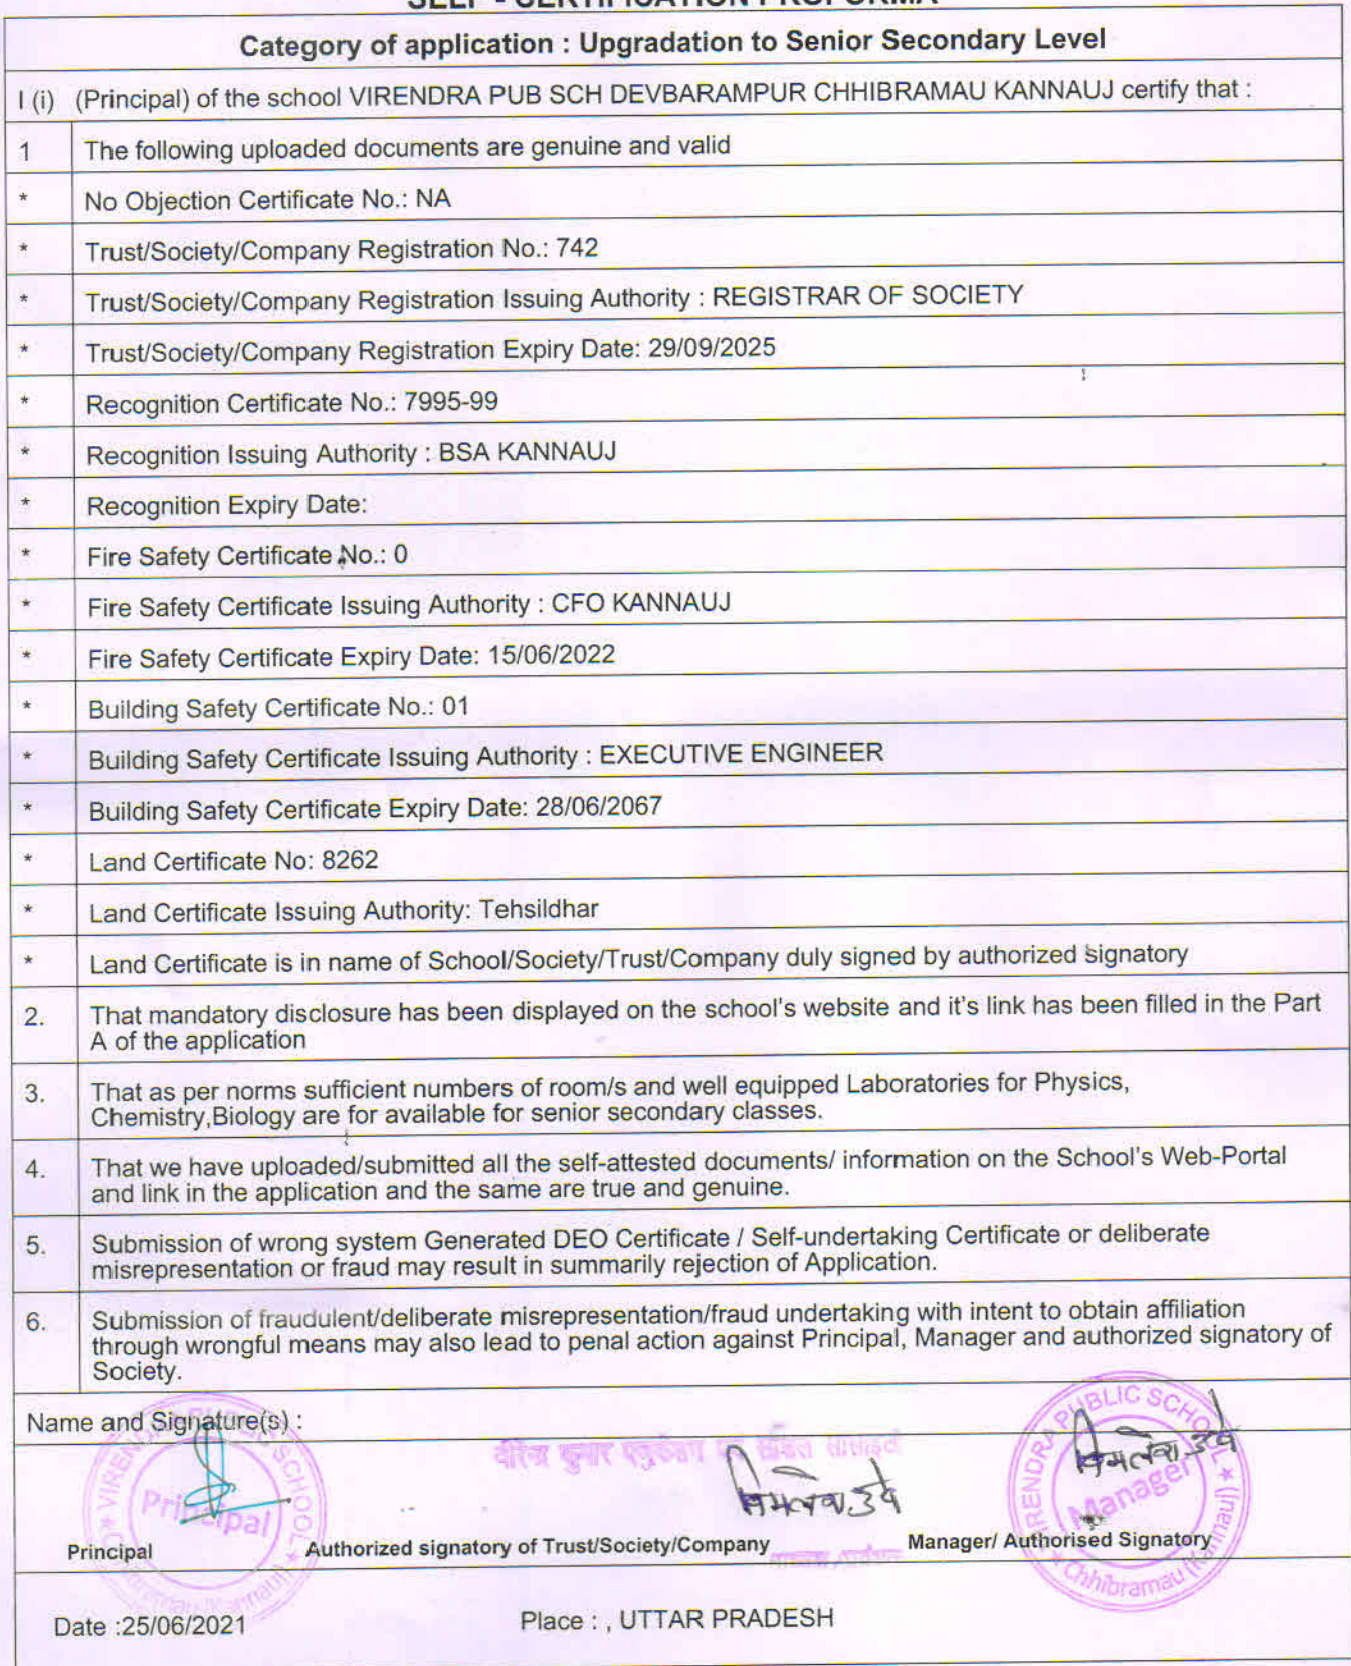 SELF - CERTIFICATION PROFORMA
Category of application : Upgradation to Senior Secondary Level
I (i) (Principal) of the school VIRENDRA PUB SCH DEVBARAMPUR CHHIBRAMAU KANNAUJ certify that :
1 The following uploaded documents are genuine and valid
* No Objection Certificate No.: NA
* Trust/Society/Company Registration No.: 742
* Trust/Society/Company Registration Issuing Authority : REGISTRAR OF SOCIETY
* Trust/Society/Company Registration Expiry Date: 29/09/2025
* Recognition Certificate No.: 7995-99
* Recognition Issuing Authority : BSA KANNAUJ
* Recognition Expiry Date:
* Fire Safety Certificate No.: 0
* Fire Safety Certificate Issuing Authority : CFO KANNAUJ
* Fire Safety Certificate Expiry Date: 15/06/2022
* Building Safety Certificate No.: 01
* Building Safety Certificate Issuing Authority : EXECUTIVE ENGINEER
* Building Safety Certificate Expiry Date: 28/06/2067
* Land Certificate No: 8262
* Land Certificate Issuing Authority: Tehsildhar
* Land Certificate is in name of School/Society/Trust/Company duly signed by authorized signatory
2. That mandatory disclosure has been displayed on the school's website and it's link has been filled in the Part
A of the application
3. That as per norms sufficient numbers of room/s and well equipped Laboratories for Physics,
Chemistry,Biology are for available for senior secondary classes.
4. That we have uploaded/submitted all the self-attested documents/ information on the School's Web-Portal
and link in the application and the same are true and genuine.
5. Submission of wrong system Generated DEO Certificate / Self-undertaking Certificate or deliberate
misrepresentation or fraud may result in summarily rejection of Application.
6. Submission of fraudulent/deliberate misrepresentation/fraud undertaking with intent to obtain affiliation
through wrongful means may also lead to penal action against Principal, Manager and authorized signatory of
Society.
Name and Signature(s) :
VIRENDRA PUBLIC SCHOOL
Principal
वीरेन्द्र कुमार
VIRENDRA PUBLIC SCHOOL
Manager
Chhibramau (Kannauj)
Principal Authorized signatory of Trust/Society/Company Manager/ Authorised Signatory
Date :25/06/2021 Place : , UTTAR PRADESH